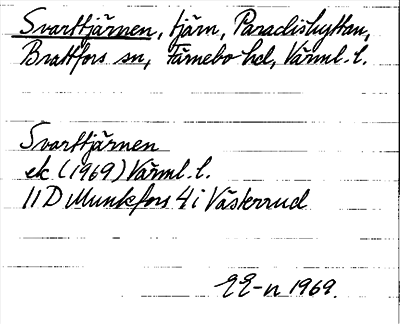 Svarttjärnen, tjärn, Paradishyttan,
Brattfors sn, Färnebo hd, Värml. l.
Svarttjärnen
ek. (1969) Värml. l.
11D Munkfors 4i Västerrud
EE-n 1969.